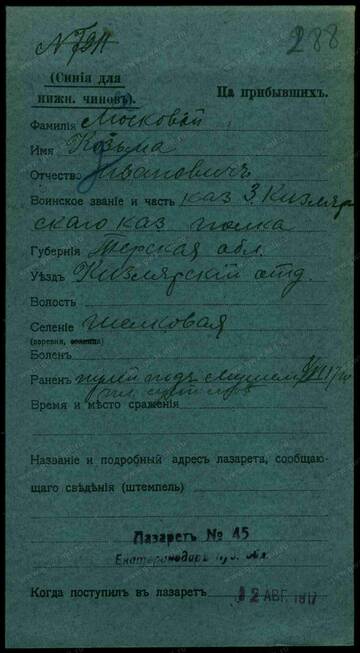 288
(Синія для
нижн. чиновъ).
На прибывшихъ.
Фамилія Московой
Имя Козьма
Отчество Ивановичъ
Воинское званіе и часть каз 3. Кизляр
скаго каз полка
Губернія Терская обл.
Уѣздъ Кизлярскій отд.
Волость
Селеніе Шелковая
(деревня, станица)
Боленъ
Раненъ пулей подъ
Время и мѣсто сраженія
Названіе и подробный адресъ лазарета, сообщаю-
щаго свѣдѣнія (штемпель)
Лазаретъ № 45
Екатеринодаръ Куб. обл.
Когда поступилъ в лазаретъ 12 АВГ. 1917